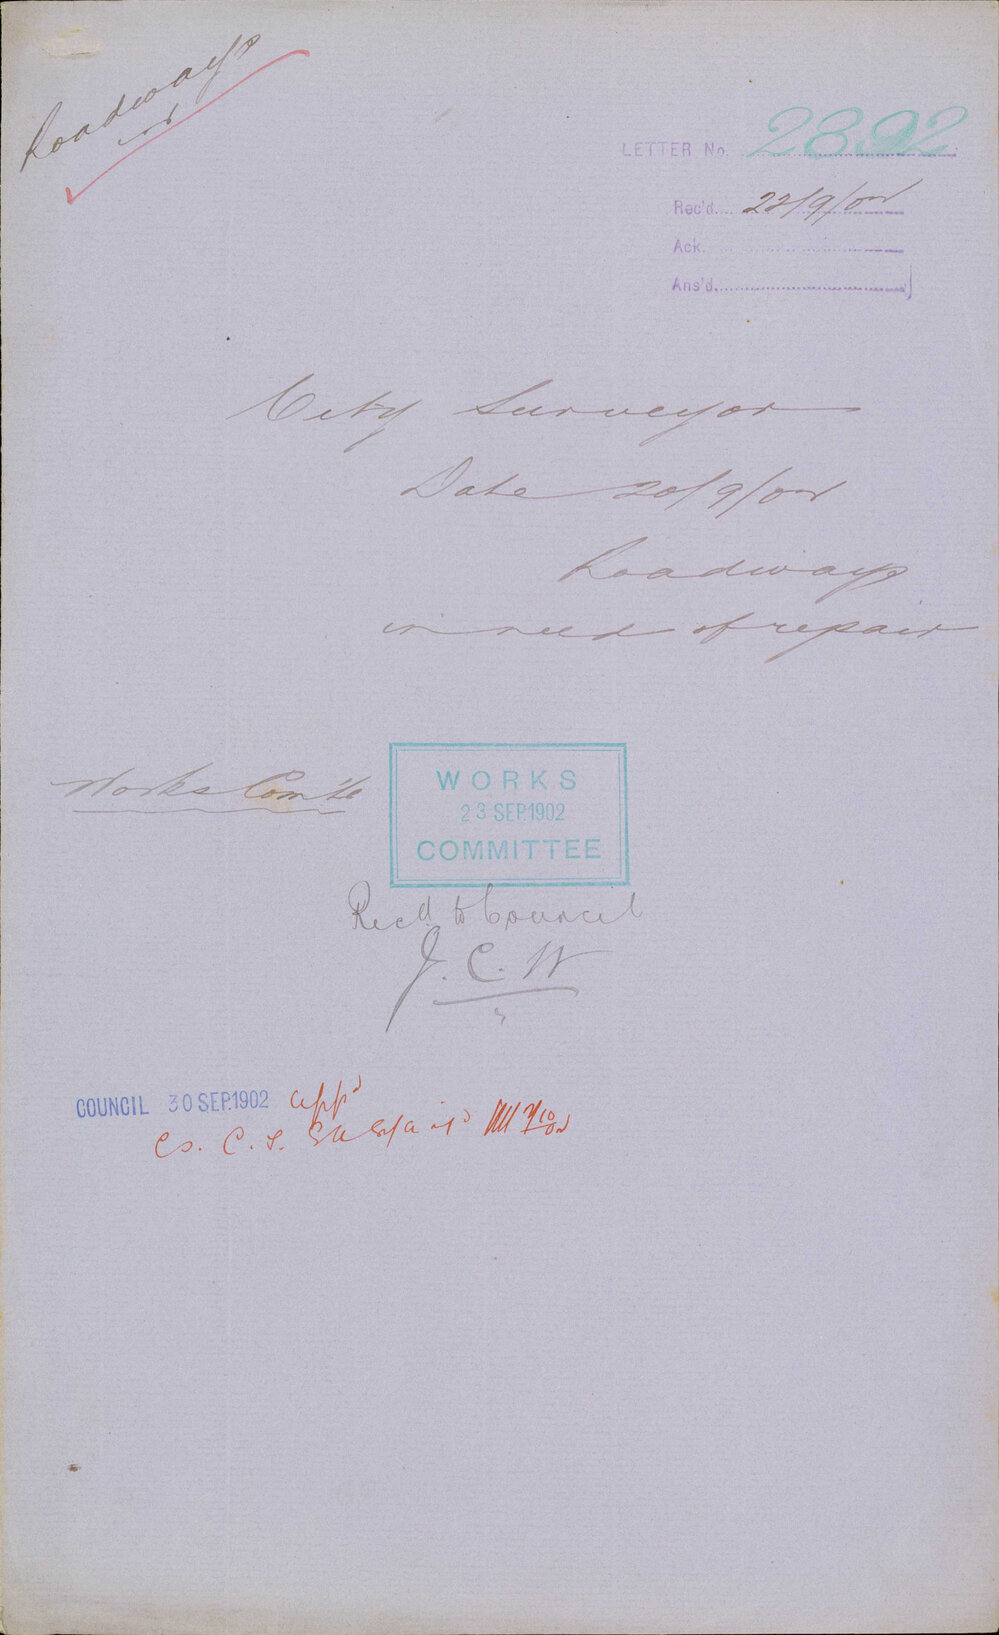 Roadways
LETTER No. 2892
Rec'd. 22/9/02
Ack.
Ans'd.
City Surveyor
Date 20/9/02
Roadways
in need of repair
Works Comtte
WORKS
23 SEP. 1902
COMMITTEE
Recd to Council
J. C. W
COUNCIL 30 SEP. 1902 appd
Co. C. S.